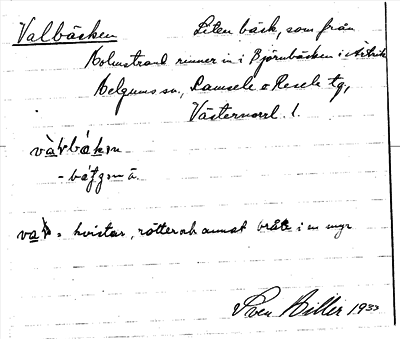 Valbäcken Liten bäck, som från
Holmstrand rinner in i Björnbäcken i
Helgums sn, Ramsele o Resele tg,
Västernorrl. l.
hvistar, rötter och annat bråte i en myr
Sven Hiller 1933